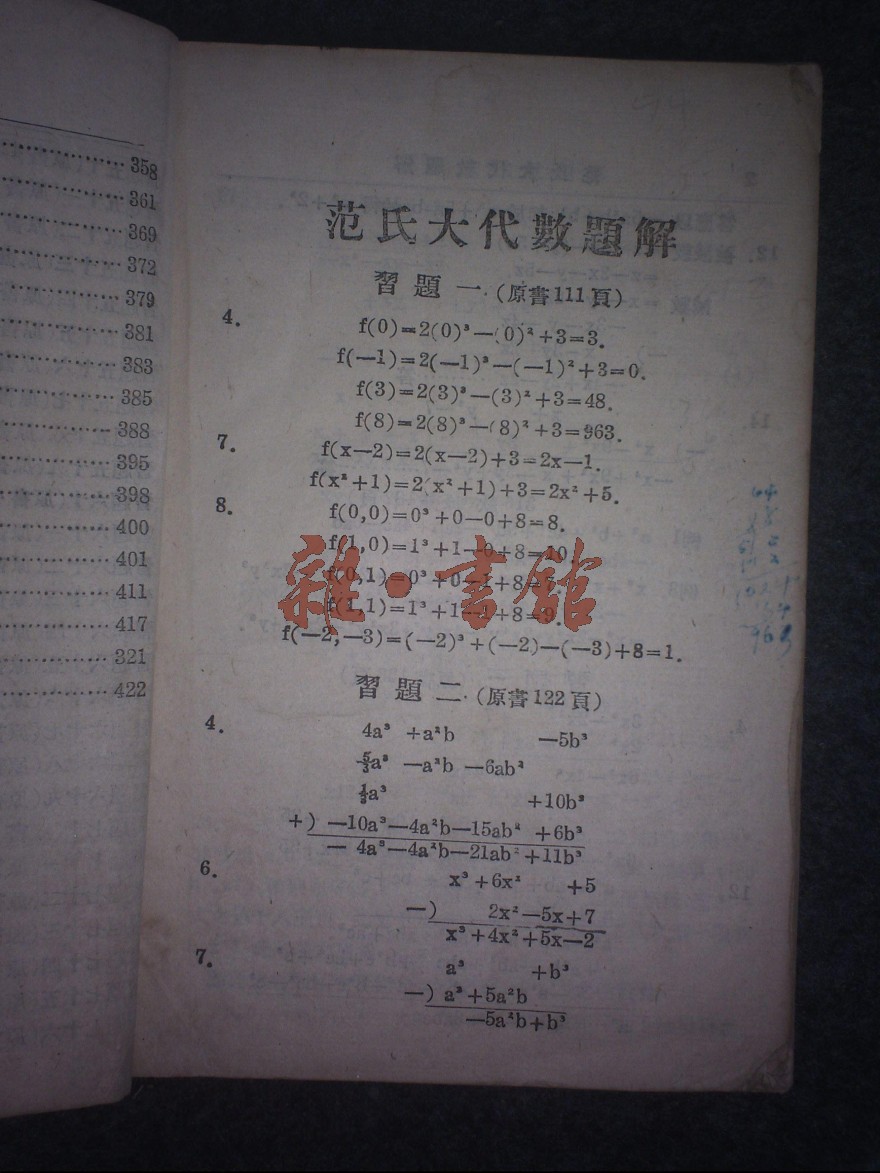 358
361
369
372
379
381
383
385
388
395
398
400
401
411
417
321
422
范氏大代數題解
習題一.(原書111頁)
4. f(0)=2(0)³—(0)²+3=3.
f(—1)=2(—1)³—(—1)²+3=0.
f(3)=2(3)³—(3)²+3=48.
f(8)=2(8)³—(8)²+3=963.
7. f(x—2)=2(x—2)+3=2x—1.
f(x²+1)=2(x²+1)+3=2x²+5.
8. f(0,0)=0³+0—0+8=8.
f(1,0)=1³+1—0+8=10.
f(0,1)=0³+0—1+8=7.
f(1,1)=1³+1—1+8=9.
f(—2,—3)=(—2)³+(—2)—(—3)+8=1.
雜·書館
習題二.(原書122頁)
4. 4a³ +a²b —5b³
5/3a³ —a²b —6ab²
1/3a³ +10b³
+) —10a³—4a²b—15ab² +6b³
— 4a³—4a²b—21ab²+11b³
6. x³+6x² +5
—) 2x²—5x+7
x³+4x²+5x—2
7. a³ +b³
—) a³+5a²b
—5a²b+b³
64
8
963